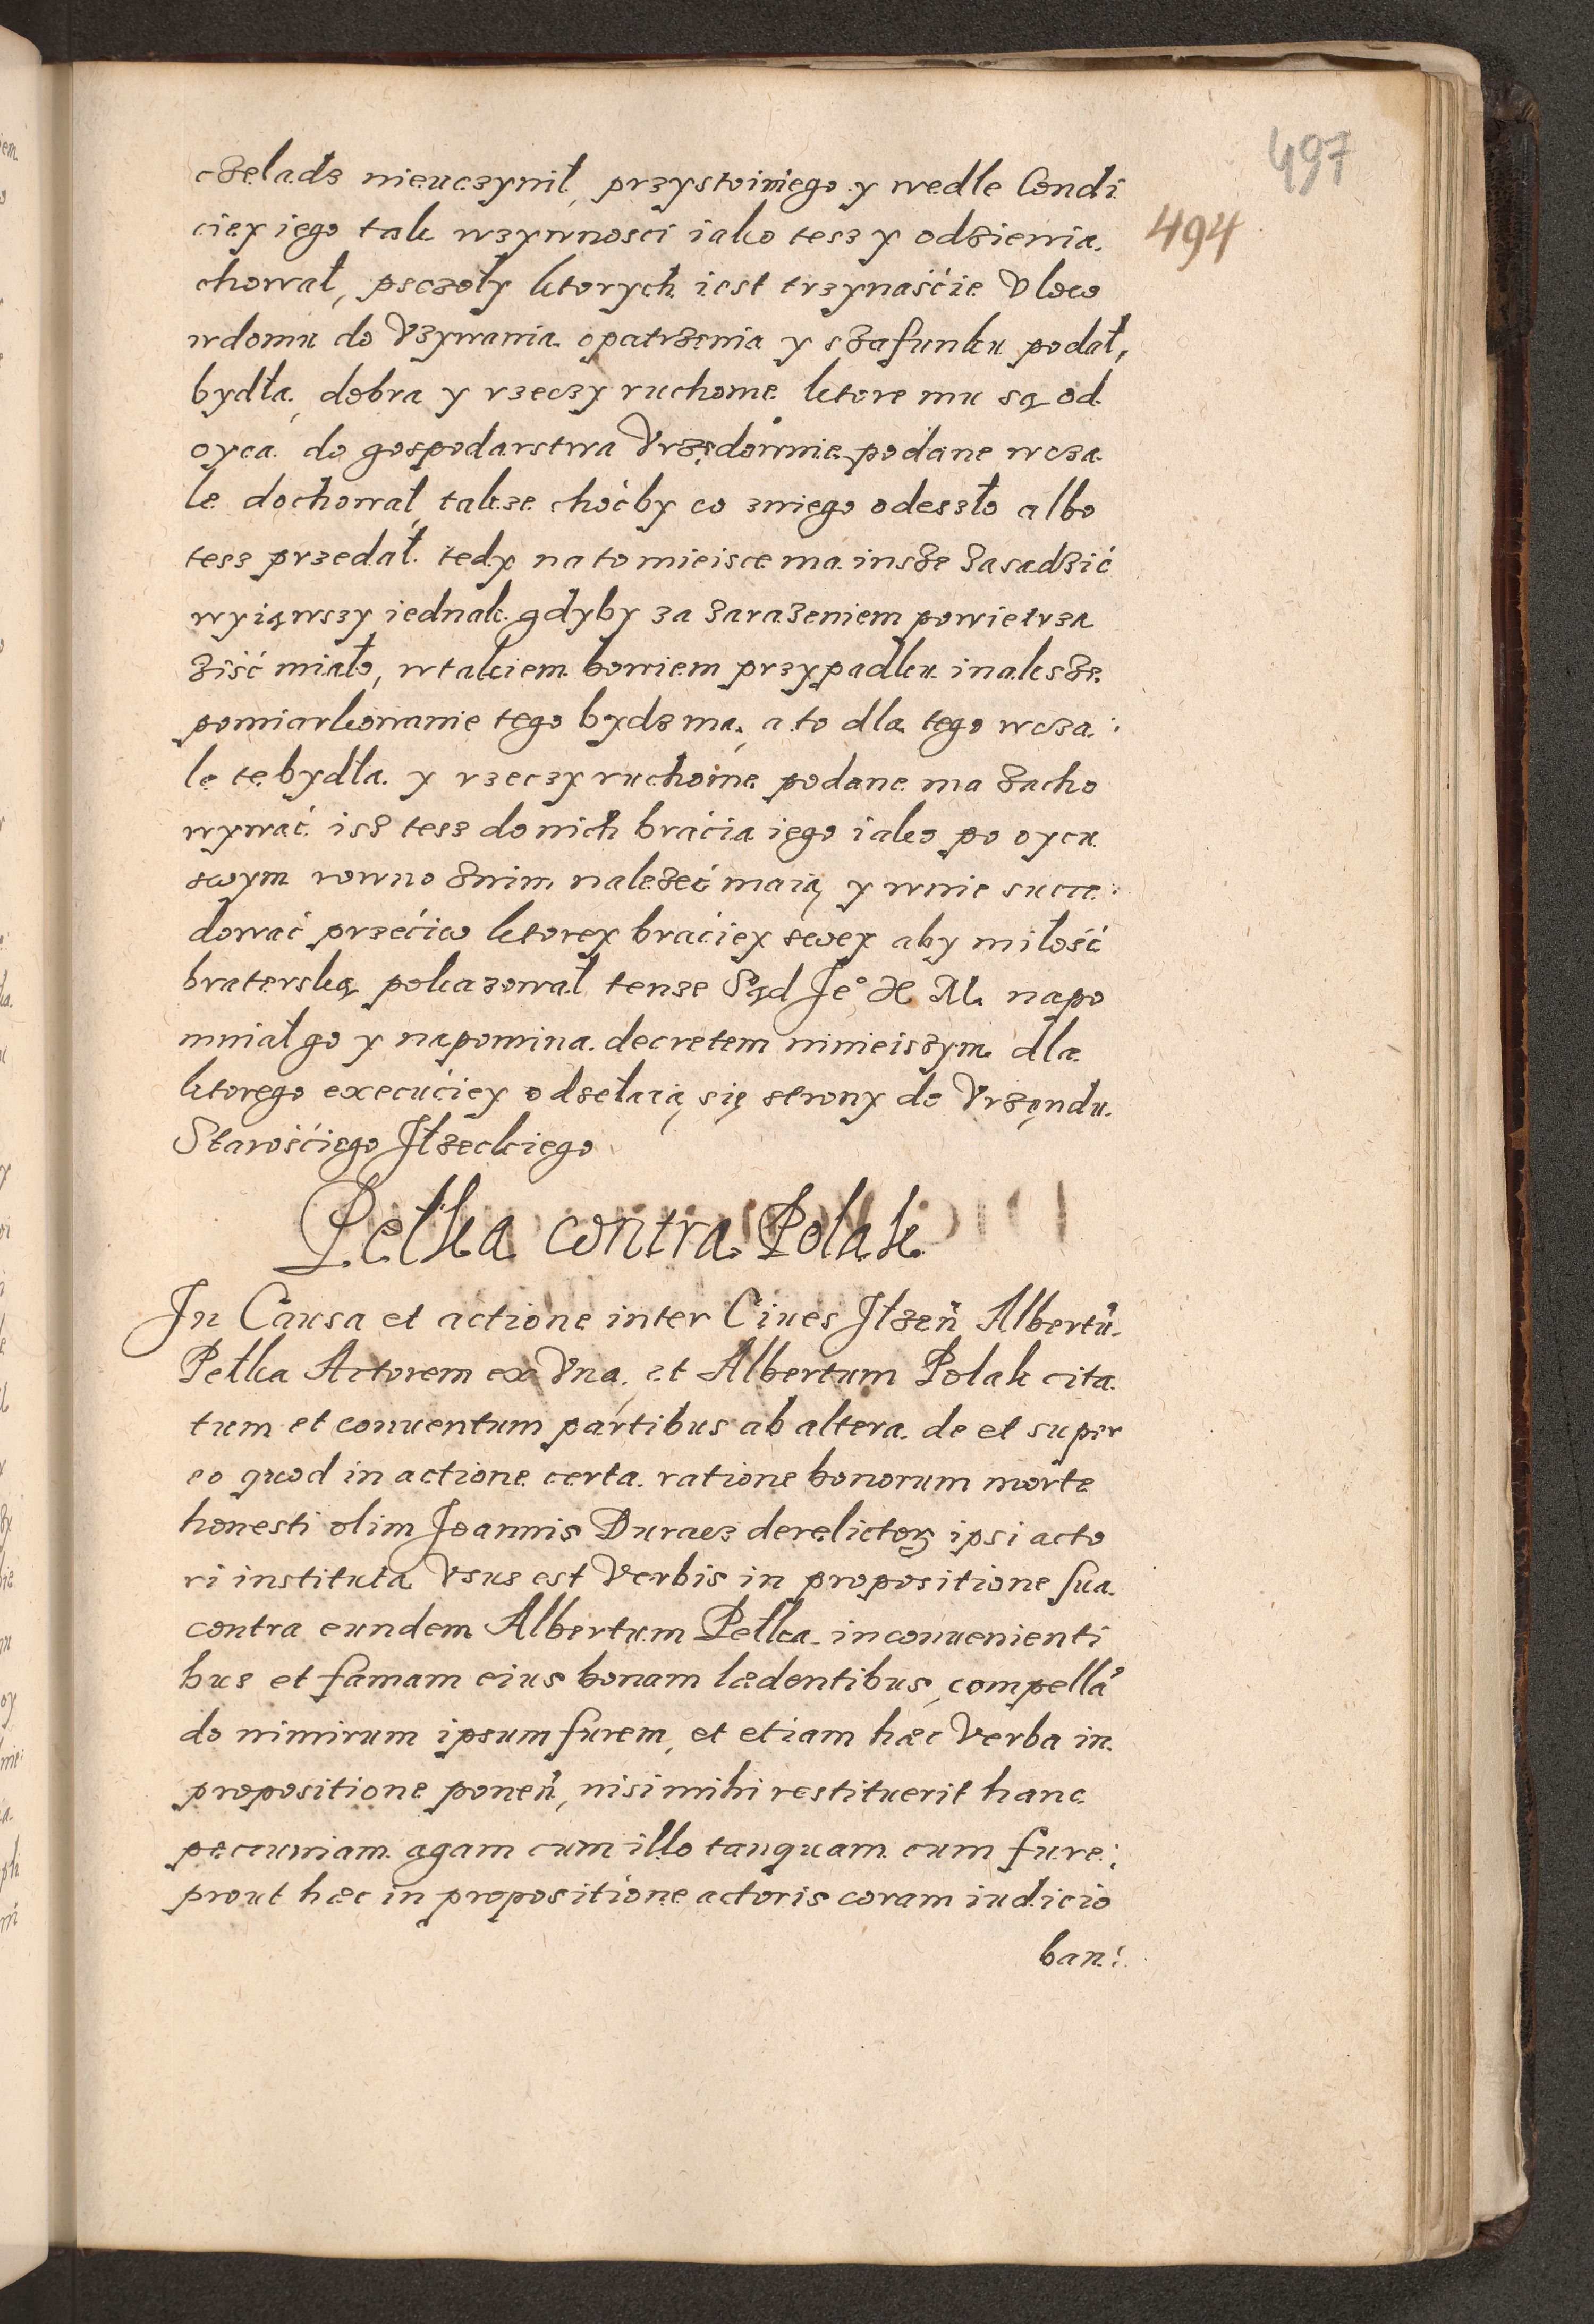 497
494
czeladz nieuczynił, przystoiniego y wedle Condi
ciey iego tak wzywnosci iako tesz y odzienia
chował, psczoły ktorych iest trzynaśćie V loco
wdomu do Vzywania opatrzenia y szafunku podał,
bydła, dobra y rzeczy ruchome ktore mu są od
oyca do gospodarstwa Vrzędownie podane wcza
le dochował, takze choćby co zniego odeszło albo
tesz przedał tedy na to mieisce ma insze zasadzić
wyiąwszy iednak gdyby za zarazeniem powietrza
ziść miało, wtakiem bowiem przypadku inaksze
pomiarkowanie tego bydz ma, a to dla tego wcza:
le te bydła y rzeczy ruchome podane ma zacho
wywać isz tesz do nich braćia iego iako po oycu
swym rowno znim nalezeć maią y wnie succe:
dować przećiw ktorey braćiey swey aby miłość
braterską pokazował tenze Sąd Je° X M. napo
mniał go y napomina decretem ninieiszym dla
ktorego execućiey odsełaią się strony do Vrzęndu
Starośćiego Jłzeckiego
Pełka contra Polak
In Causa et actione inter Ciues Jłzeñ Albertũ
Pełka Actorem ex Vna, et Albertum Polak cita
tum et conuentum partibus ab altera de et super
eo quod in actione certa ratione bonorum morte
honesti olim Joannis Duracz derelictoꝝ ipsi acto
ri instituta Vsus est Verbis in propositione sua
contra eundem Albertum Pełka inconuenienti
bus et famam eius bonam lædentibus, compellã
do nimirum ipsum furem, et etiam hæc Verba in
propositione poneñ, nisi mihi restituerit hanc
pecuniam agam cum illo tanquam cum fure;
prout hæc in propositione actoris coram iudicio
ban: